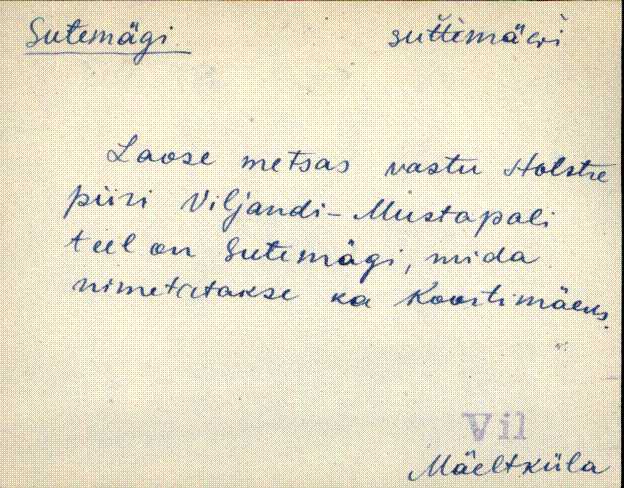 Sutemägi suttimäɢi
Laose metsas vastu Holstre
piiri Viljandi-Mustapali
teel on Sutemägi, mida
nimetatakse ka Koortimäeks.
Vil
Mäeltküla